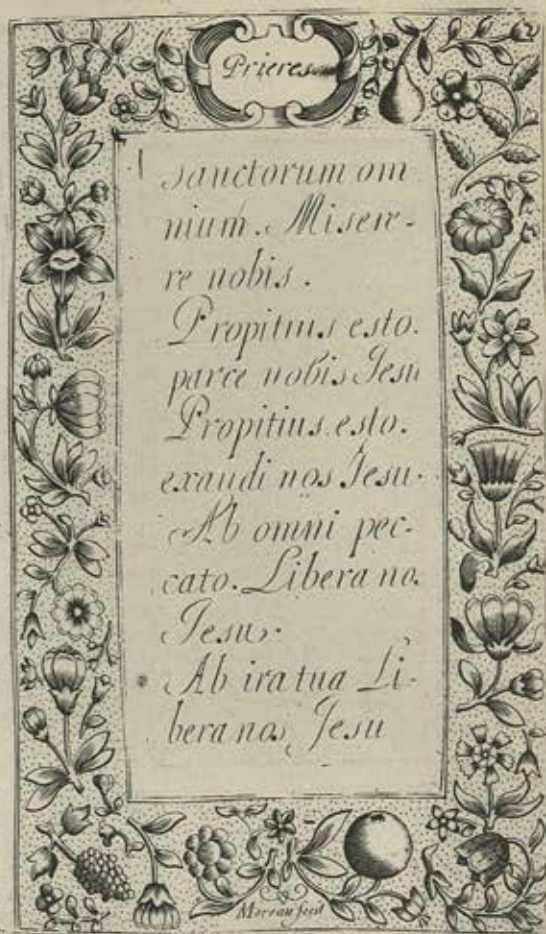 Prieres
Sanctorum om
nium. Misere-
re nobis.
Propitius esto.
parce nobis Jesu
Propitius esto.
exaudi nos Jesu.
Ab omni pec-
cato. Libera nos
Jesu.
Ab ira tua Li-
bera nos Jesu
Moreau fecit